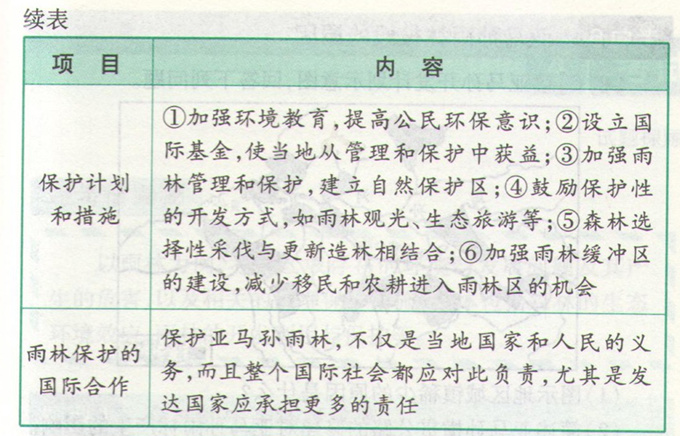 续表
项 目
内 容
保护计划
和措施
①加强环境教育,提高公民环保意识;②设立国
际基金,使当地从管理和保护中获益;③加强雨
林管理和保护,建立自然保护区;④鼓励保护性
的开发方式,如雨林观光、生态旅游等;⑤森林选
择性采伐与更新造林相结合;⑥加强雨林缓冲区
的建设,减少移民和农耕进入雨林区的机会
雨林保护的
国际合作
保护亚马孙雨林,不仅是当地国家和人民的义
务,而且整个国际社会都应对此负责,尤其是发
达国家应承担更多的责任